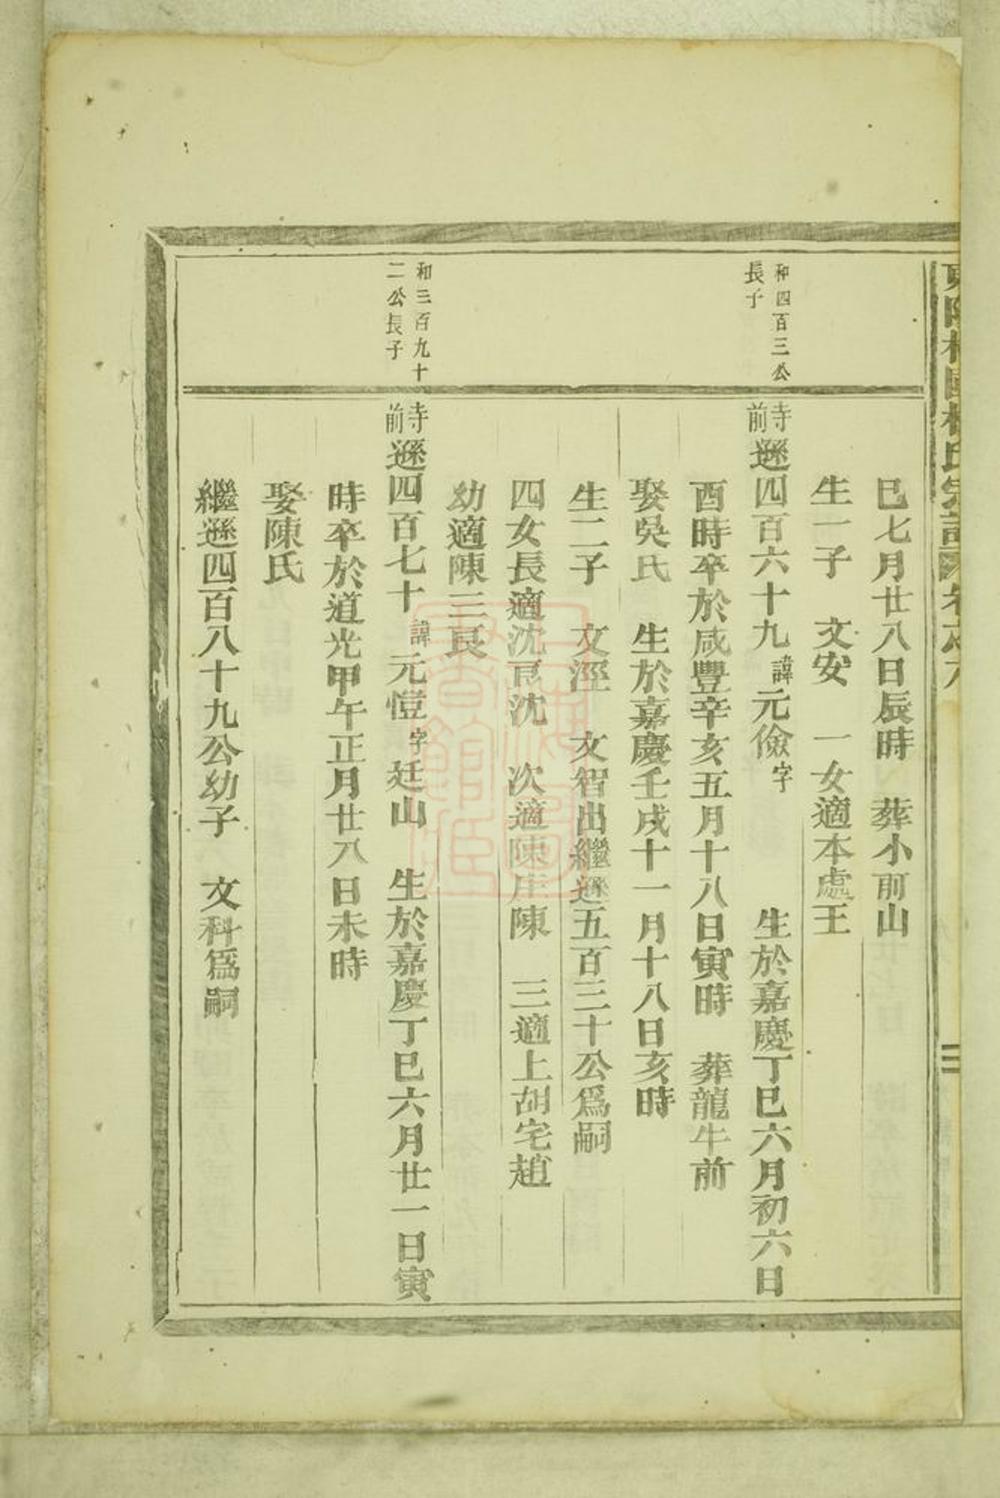 巳七月廿八日辰時　葬小前山
生一子　文安　一女適本處王
和四百三公
長子
寺前遜四百六十九諱元儉字　生於嘉慶丁巳六月初六日
酉時卒於咸豐辛亥五月十八日寅時　葬龍牛前
娶吳氏　生於嘉慶壬戌十一月十八日亥時
生二子　文涇　文智出繼遜五百三十公爲嗣
四女長適沈官沈　次適陳庄陳　三適上胡宅趙
幼適陳三良
和三百九十
二公長子
寺前遜四百七十諱元愷字廷山　生於嘉慶丁巳六月廿一日寅
時卒於道光甲午正月廿八日未時
娶陳氏
繼遜四百八十九公幼子　文科爲嗣